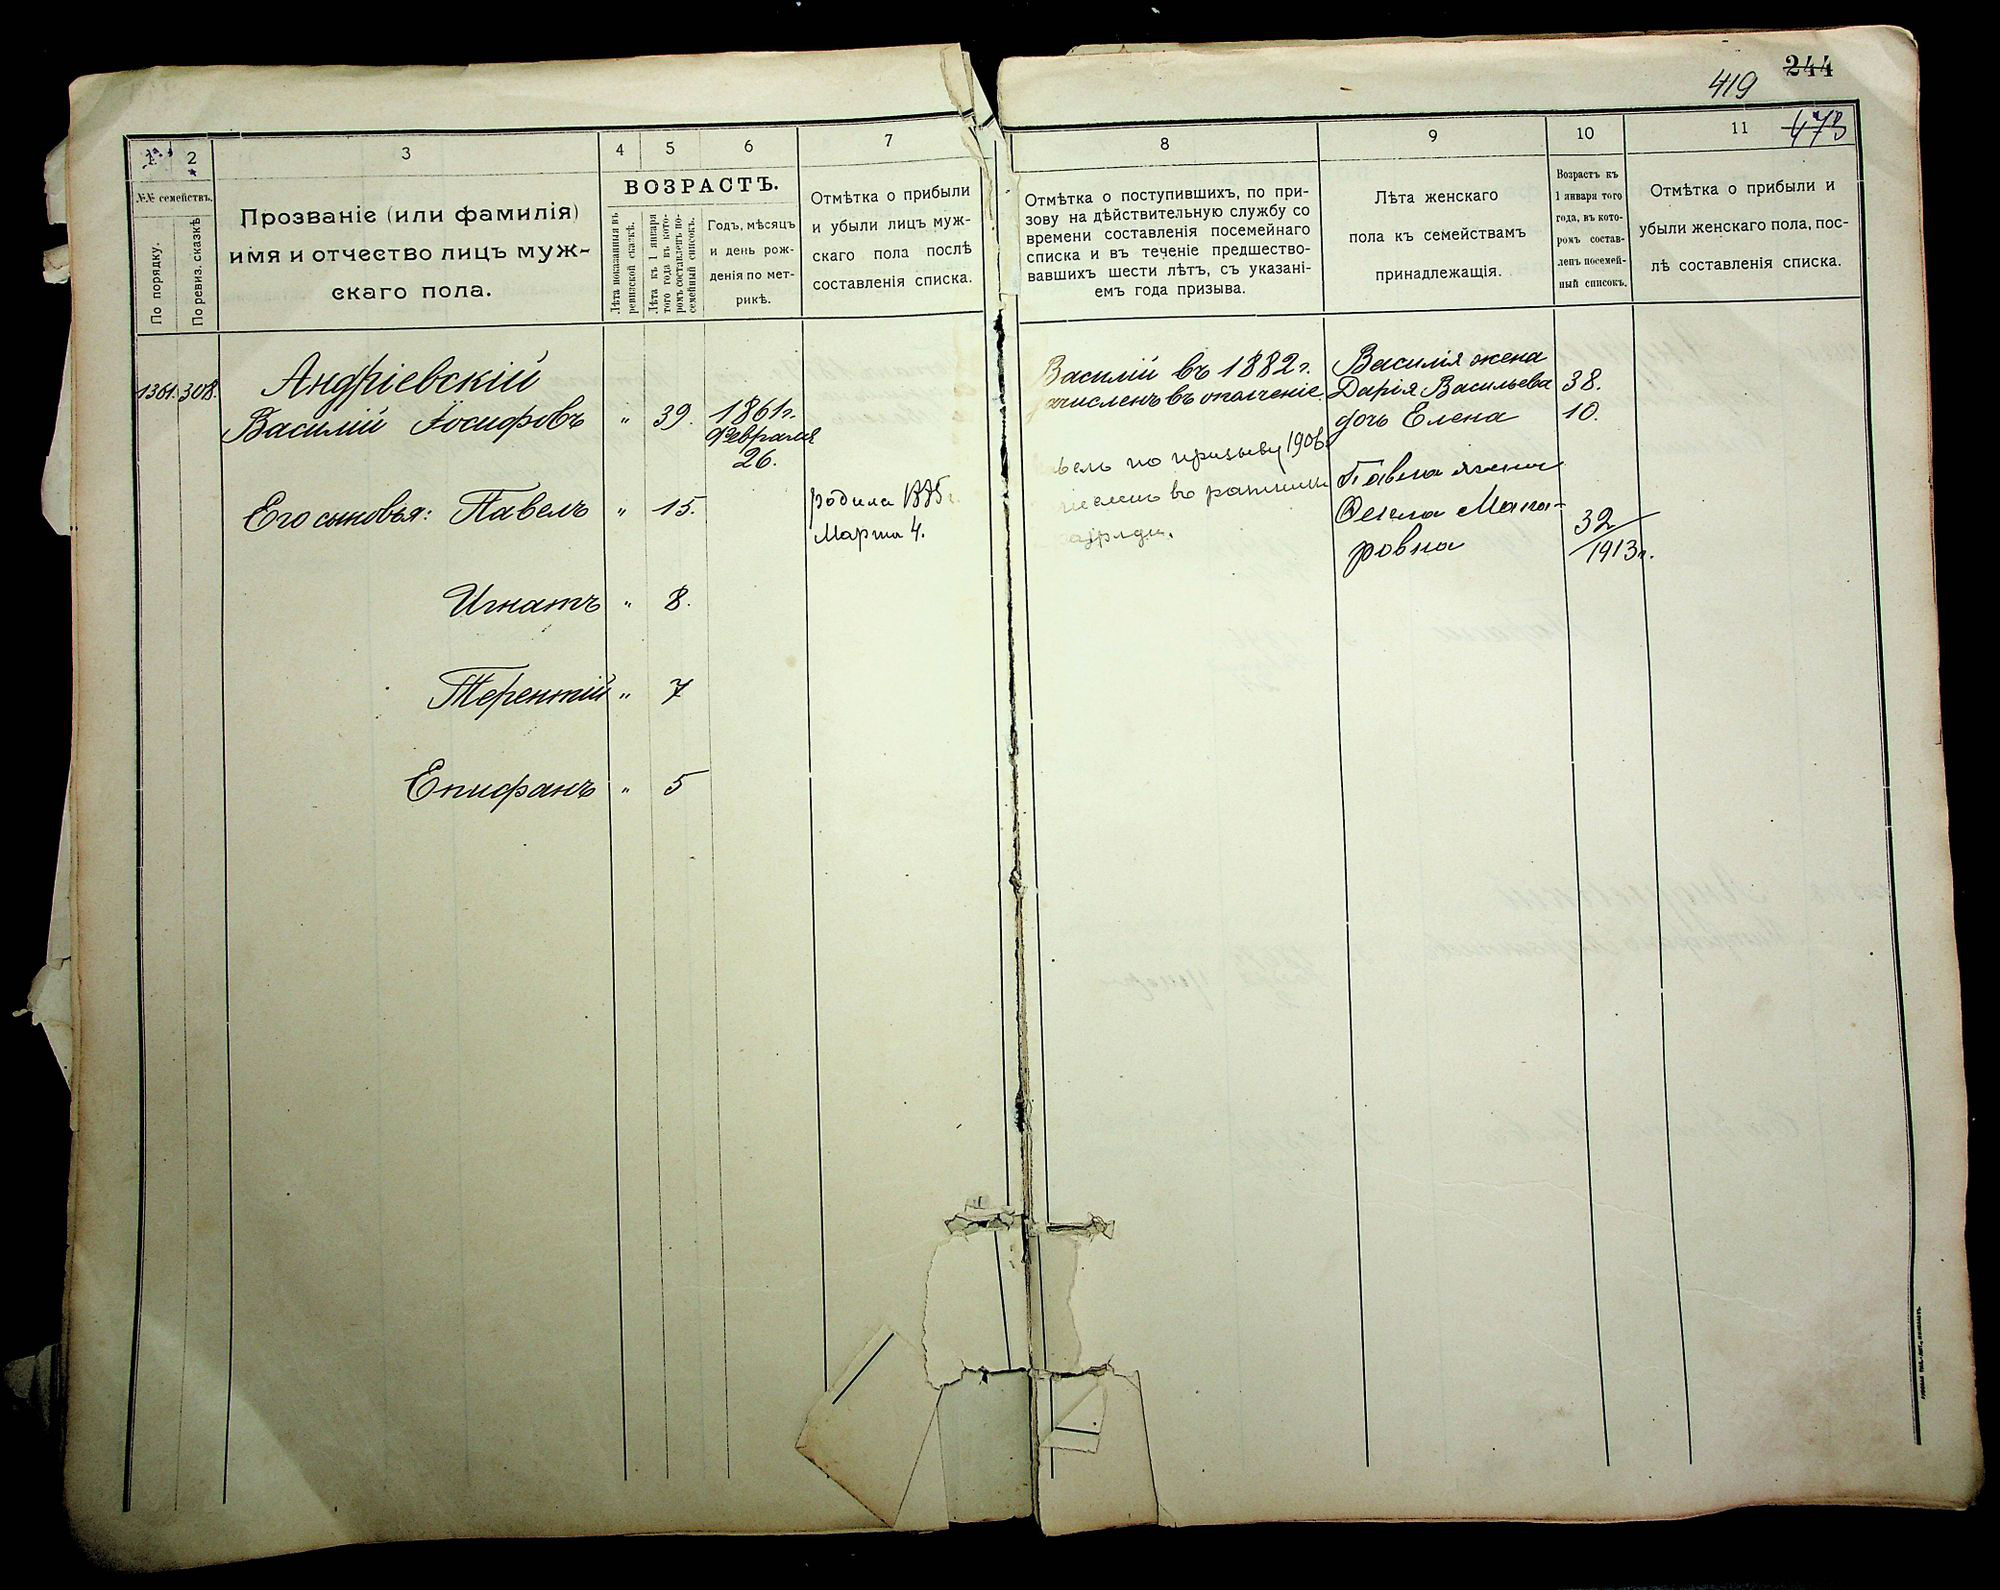 244
419
473
1 2 3 4 5 6 7 8 9 10 11
№№ семействъ.
По порядку.
По ревиз. сказкѣ
Прозваніе (или фамилія)
имя и отчество лицъ муж-
скаго пола.
ВОЗРАСТЪ.
Лѣта показанныя въ
ревизской сказкѣ.
Лѣта къ 1 января
того года въ кото-
ромъ составленъ по-
семейный списокъ.
Годъ, мѣсяцъ
и день рож-
денія по мет-
рикѣ.
Отмѣтка о прибыли
и убыли лицъ муж-
скаго пола послѣ
составленія списка.
Отмѣтка о поступившихъ, по при-
зову на дѣйствительную службу со
времени составленія посемейнаго
списка и въ теченіе предшество-
вавшихъ шести лѣтъ, съ указані-
емъ года призыва.
Лѣта женскаго
пола къ семействамъ
принадлежащія.
Возрастъ къ
1 января того
года, въ кото-
ромъ состав-
ленъ посемей-
ный списокъ.
Отмѣтка о прибыли и
убыли женскаго пола, пос-
лѣ составленія списка.
Андріевскій
1361. 308. Василій Іосифовъ " 39. 1861г.
Февраля
26.
Василій въ 1882 г.
зачисленъ въ ополченіе.
Василія жена
Дарія Васильева 38.
дочь Елена 10.
Его сыновья: Павелъ " 15.
родился 1885 г.
Марта 4.
вель по призыву 1906
числень в ратники
разряда.
Павла жена
Фекла Мака-
ровна
32
1913 г.
Игнатъ " 8.
Терентій " 7
Епифанъ " 5